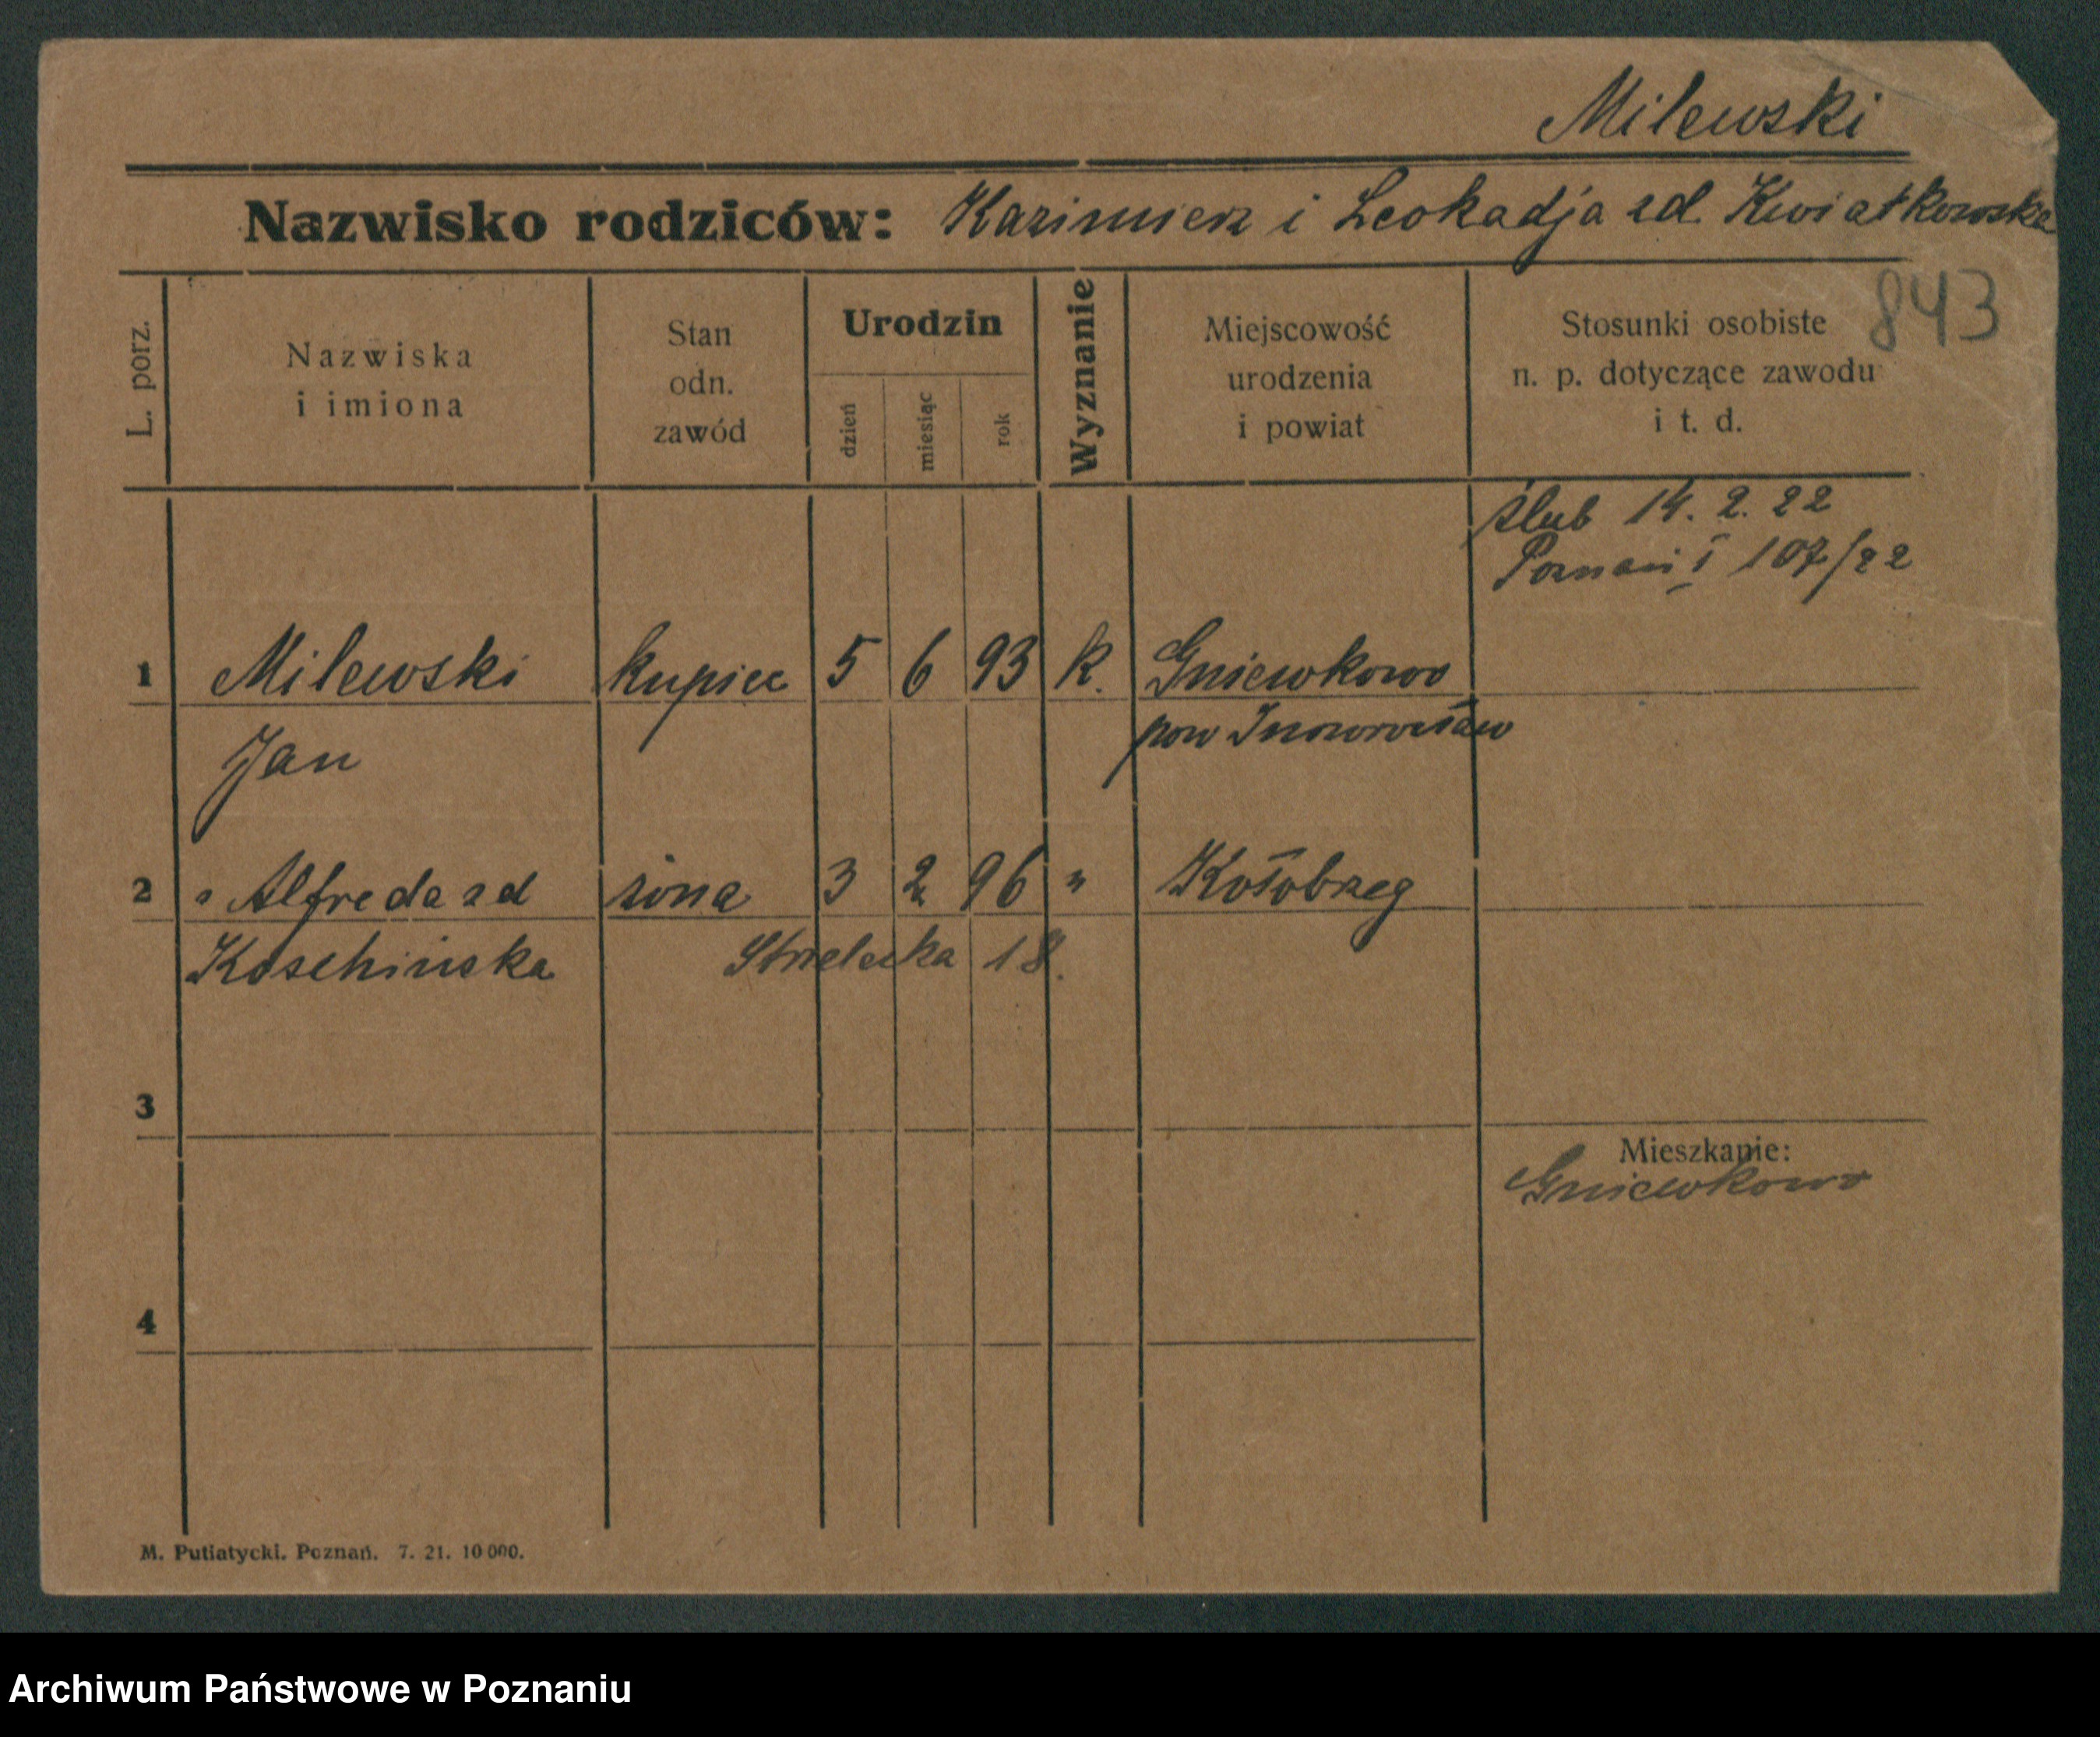 Milewski
Nazwisko rodziców: Kazimierz i Leokadja zd. Kwiatkowska
843
L. porz.
Nazwiska
i imiona
Stan
odn.
zawód
Urodzin
dzień
miesiąc
rok
Wyznanie
Miejscowość
urodzenia
i powiat
Stosunki osobiste
n. p. dotyczące zawodu
i t. d.
ślub 14. 2. 22
Poznań I 107/22
1 Milewski kupiec 5 6 93 k. Gniewkowo
Jan pow Inowrocław
2 " Alfreda zd żona 3 2 96 " Kołobrzeg
Koschińska Strzelecka 18.
3
Mieszkanie:
Gniewkowo
4
M. Putiatycki. Poznań. 7. 21. 10 000.
Archiwum Państwowe w Poznaniu